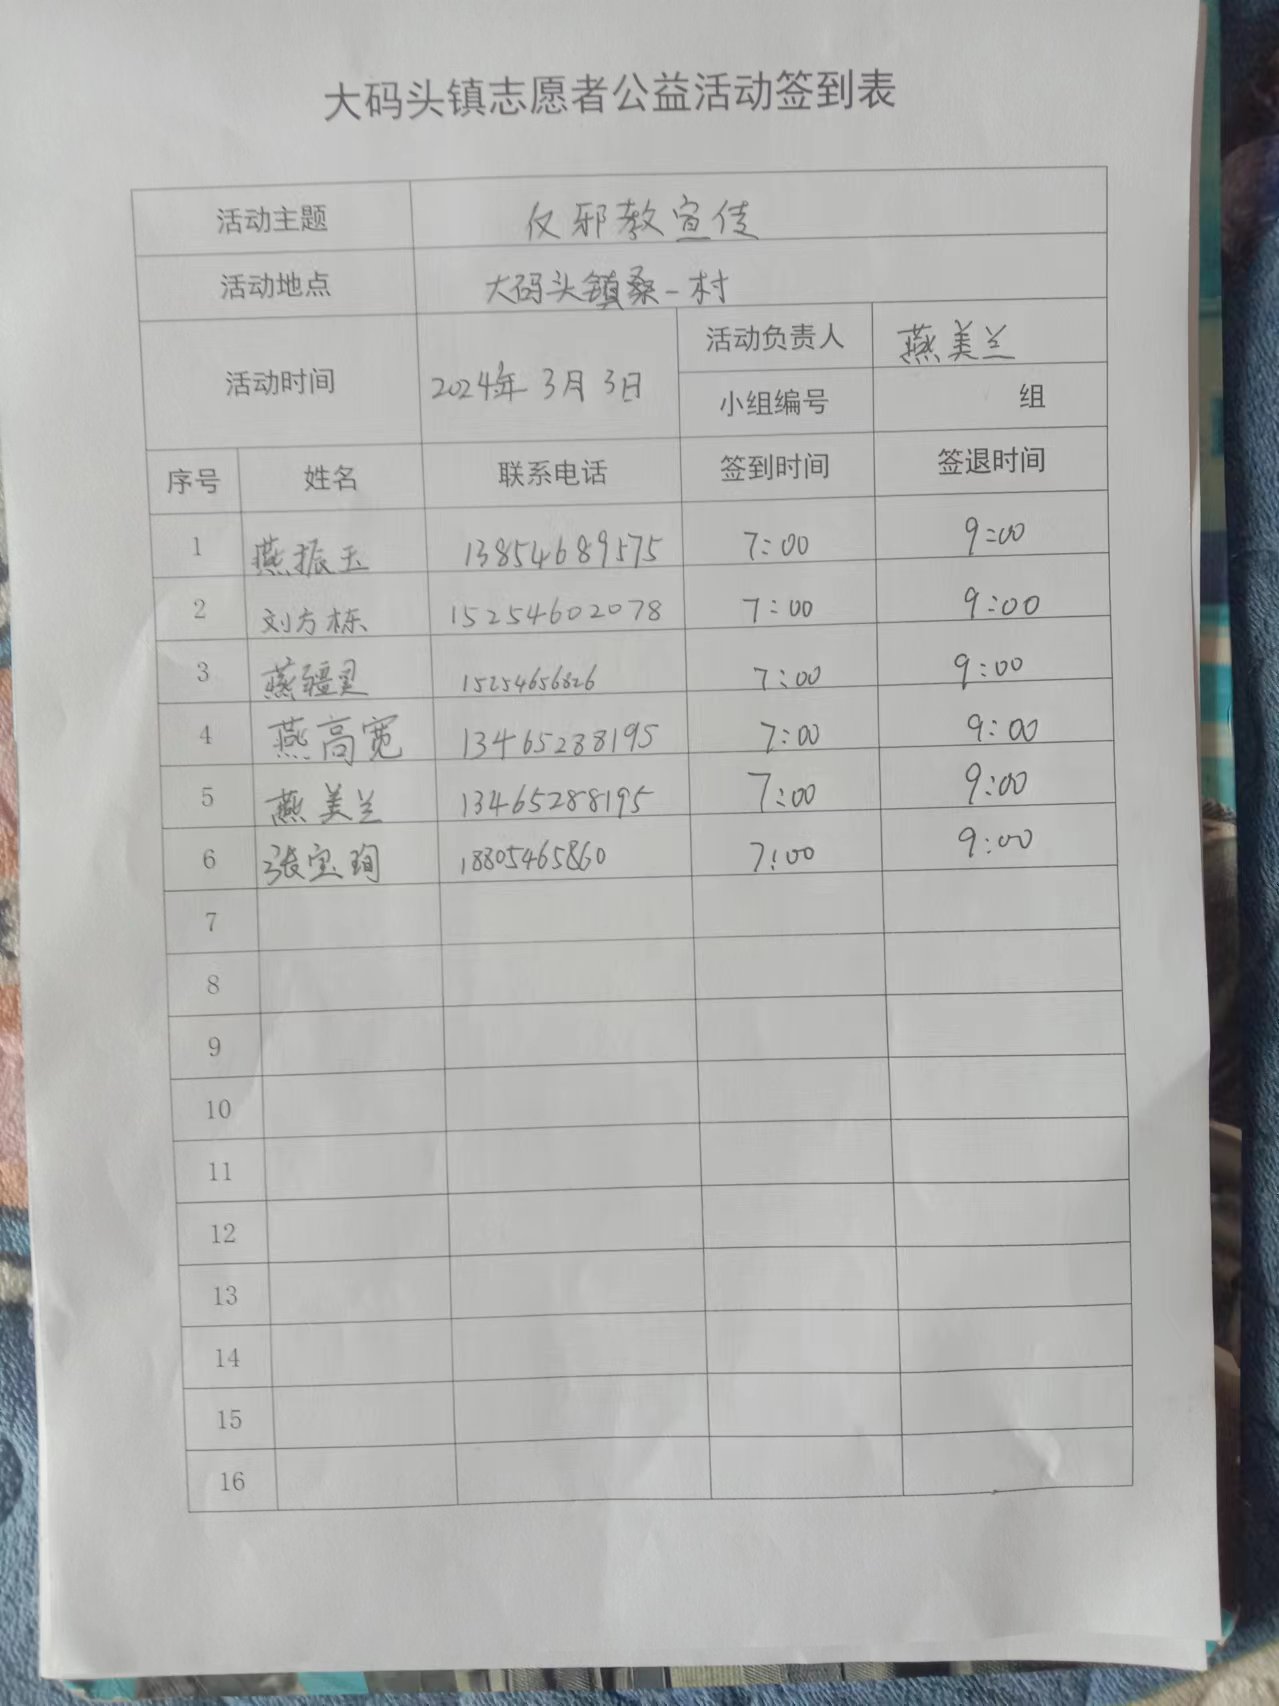 大码头镇志愿者公益活动签到表
活动主题 反邪教宣传
活动地点 大码头镇桑一村
活动时间 2024年3月3日 活动负责人 燕美兰
小组编号 组
序号 姓名 联系电话 签到时间 签退时间
1 燕振玉 13854689575 7:00 9:00
2 刘方栋 15254602078 7:00 9:00
3 燕疆灵 15254656826 7:00 9:00
4 燕高宽 13465288195 7:00 9:00
5 燕美兰 13465288195 7:00 9:00
6 张宝珣 18805465860 7:00 9:00
7
8
9
10
11
12
13
14
15
16